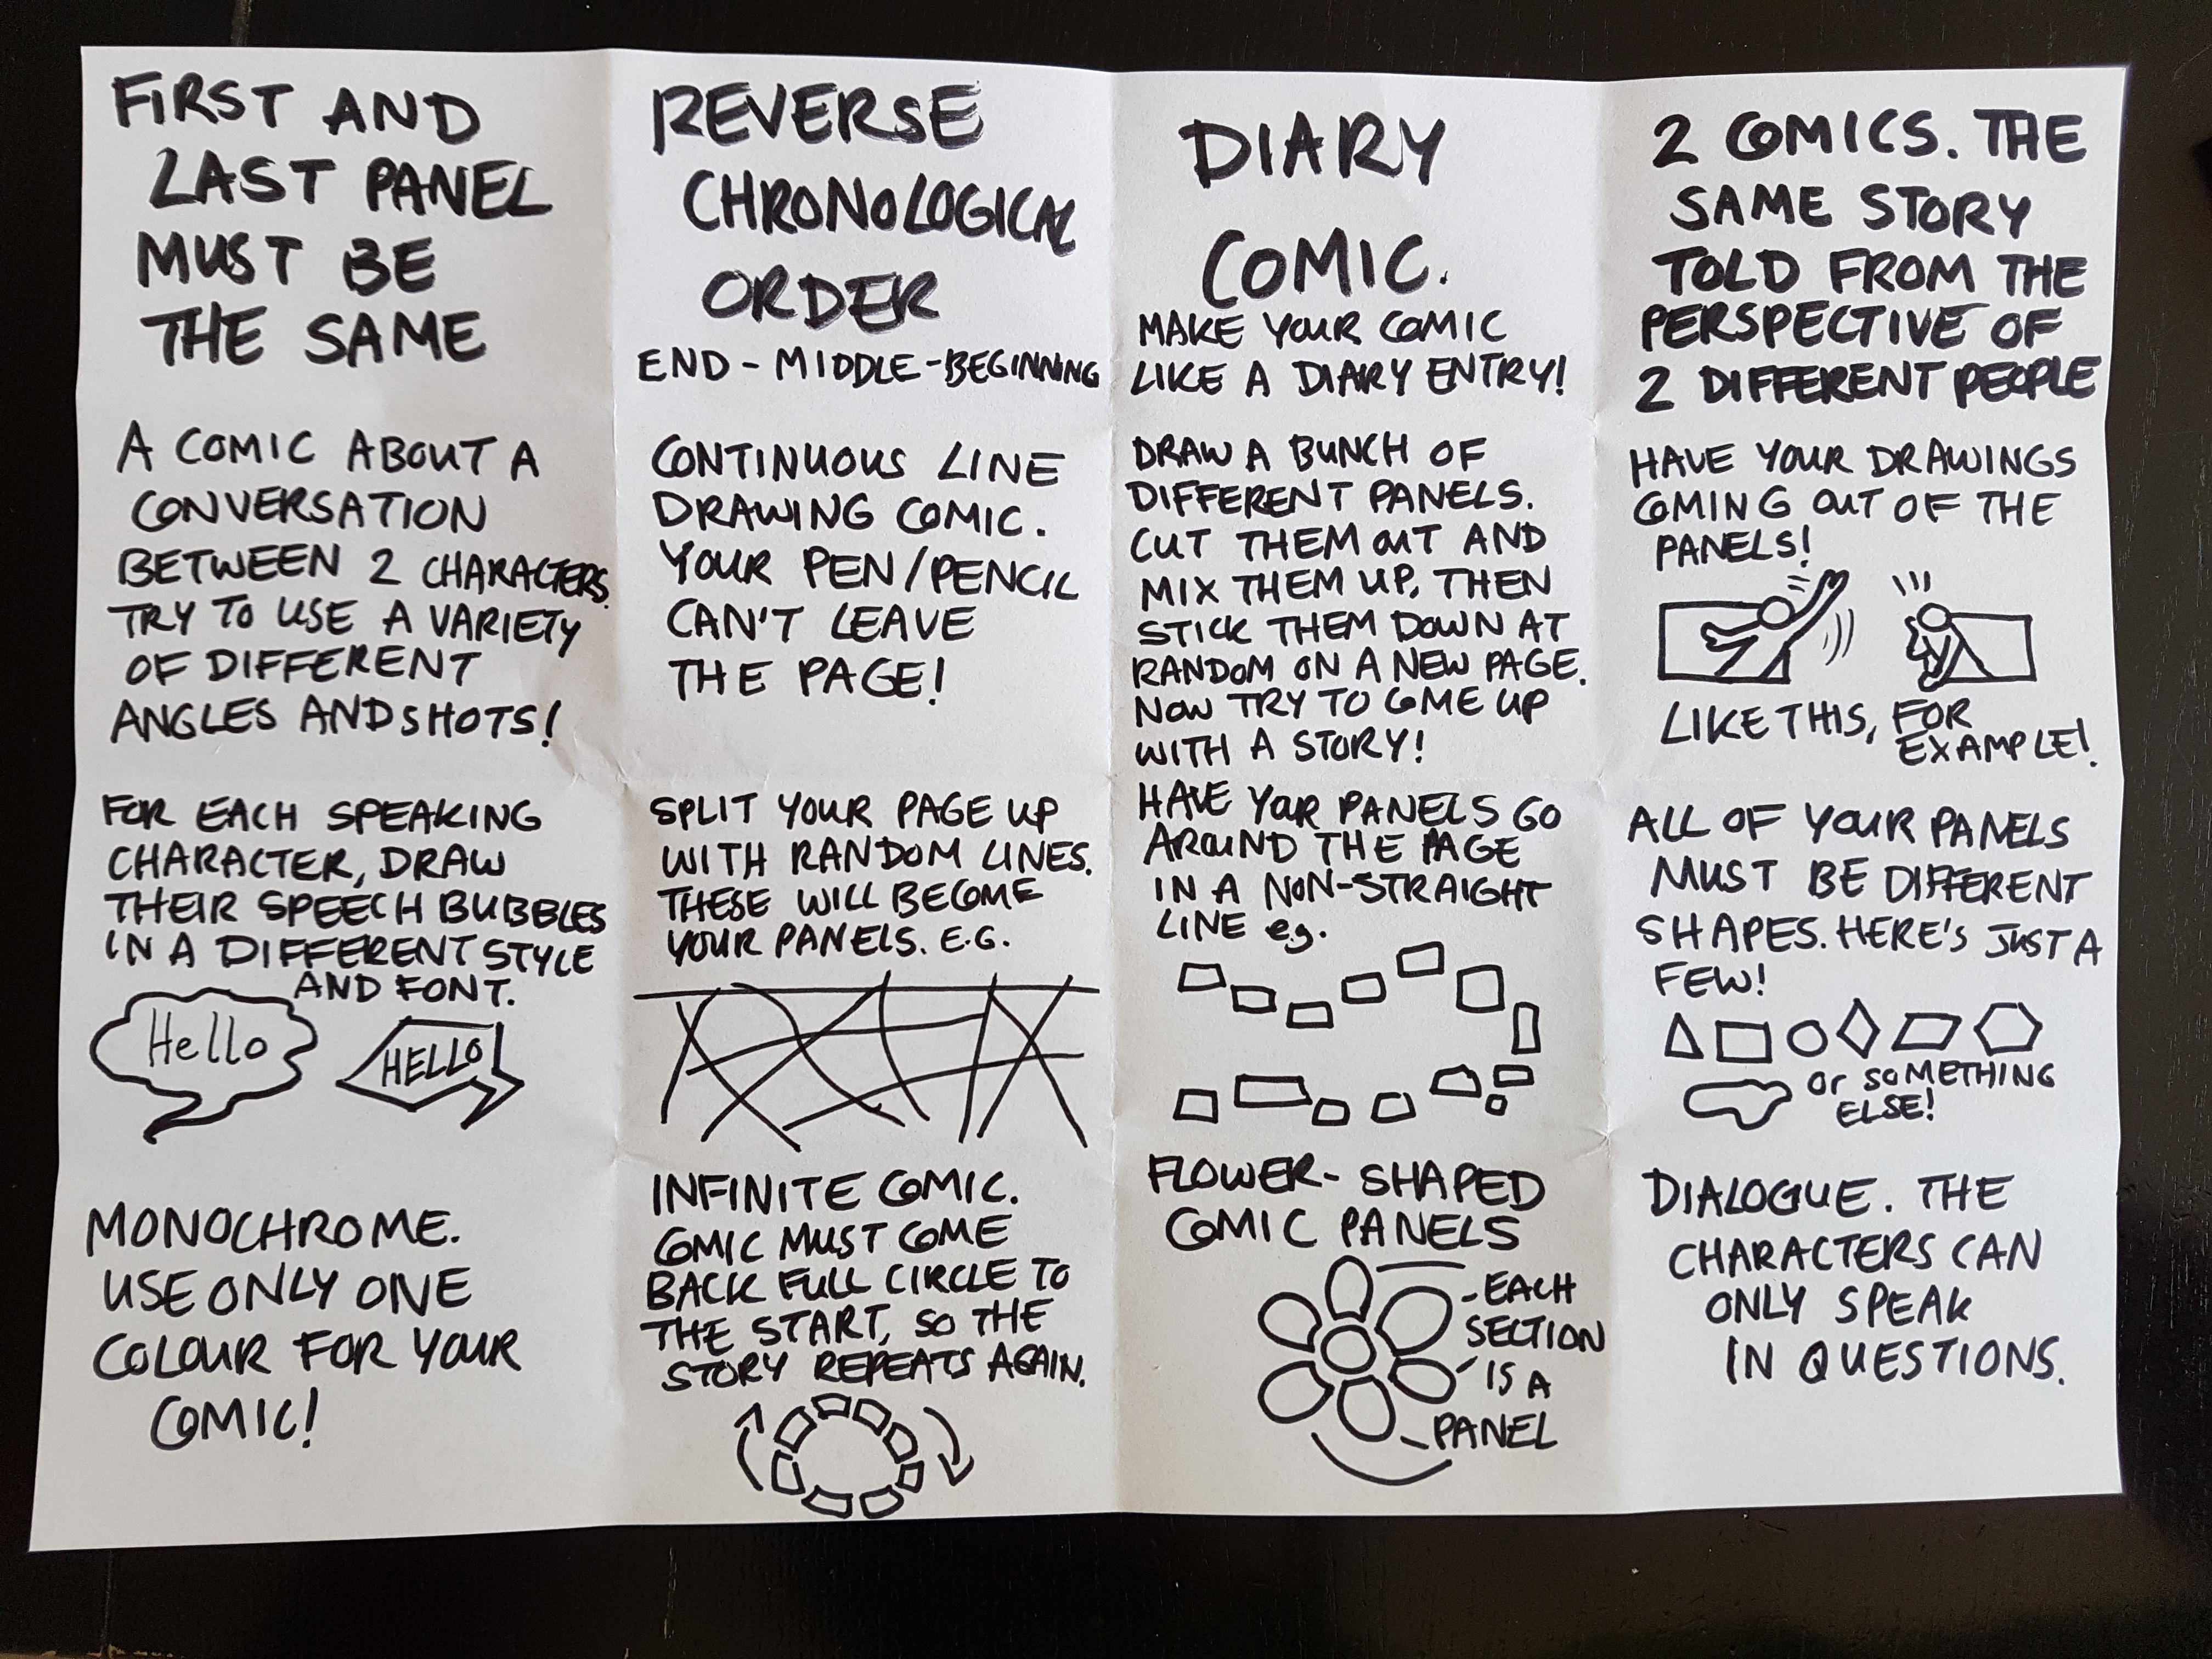 FIRST AND
LAST PANEL
MUST BE
THE SAME
REVERSE
CHRONOLOGICAL
ORDER
END - MIDDLE - BEGINNING
DIARY
COMIC.
MAKE YOUR COMIC
LIKE A DIARY ENTRY!
2 COMICS. THE
SAME STORY
TOLD FROM THE
PERSPECTIVE OF
2 DIFFERENT PEOPLE
A COMIC ABOUT A
CONVERSATION
BETWEEN 2 CHARACTERS.
TRY TO USE A VARIETY
OF DIFFERENT
ANGLES AND SHOTS!
CONTINUOUS LINE
DRAWING COMIC.
YOUR PEN/PENCIL
CAN'T LEAVE
THE PAGE!
DRAW A BUNCH OF
DIFFERENT PANELS.
CUT THEM OUT AND
MIX THEM UP, THEN
STICK THEM DOWN AT
RANDOM ON A NEW PAGE.
NOW TRY TO COME UP
WITH A STORY!
HAVE YOUR DRAWINGS
COMING OUT OF THE
PANELS!
LIKE THIS, FOR
EXAMPLE!
FOR EACH SPEAKING
CHARACTER, DRAW
THEIR SPEECH BUBBLES
IN A DIFFERENT STYLE
AND FONT.
Hello
HELLO!
SPLIT YOUR PAGE UP
WITH RANDOM LINES.
THESE WILL BECOME
YOUR PANELS. E.G.
HAVE YOUR PANELS GO
AROUND THE PAGE
IN A NON-STRAIGHT
LINE e.g.
ALL OF YOUR PANELS
MUST BE DIFFERENT
SHAPES. HERE'S JUST A
FEW!
Or SOMETHING
ELSE!
MONOCHROME.
USE ONLY ONE
COLOUR FOR YOUR
COMIC!
INFINITE COMIC.
COMIC MUST COME
BACK FULL CIRCLE TO
THE START, SO THE
STORY REPEATS AGAIN.
FLOWER-SHAPED
COMIC PANELS
- EACH
SECTION
IS A
PANEL
DIALOGUE. THE
CHARACTERS CAN
ONLY SPEAK
IN QUESTIONS.